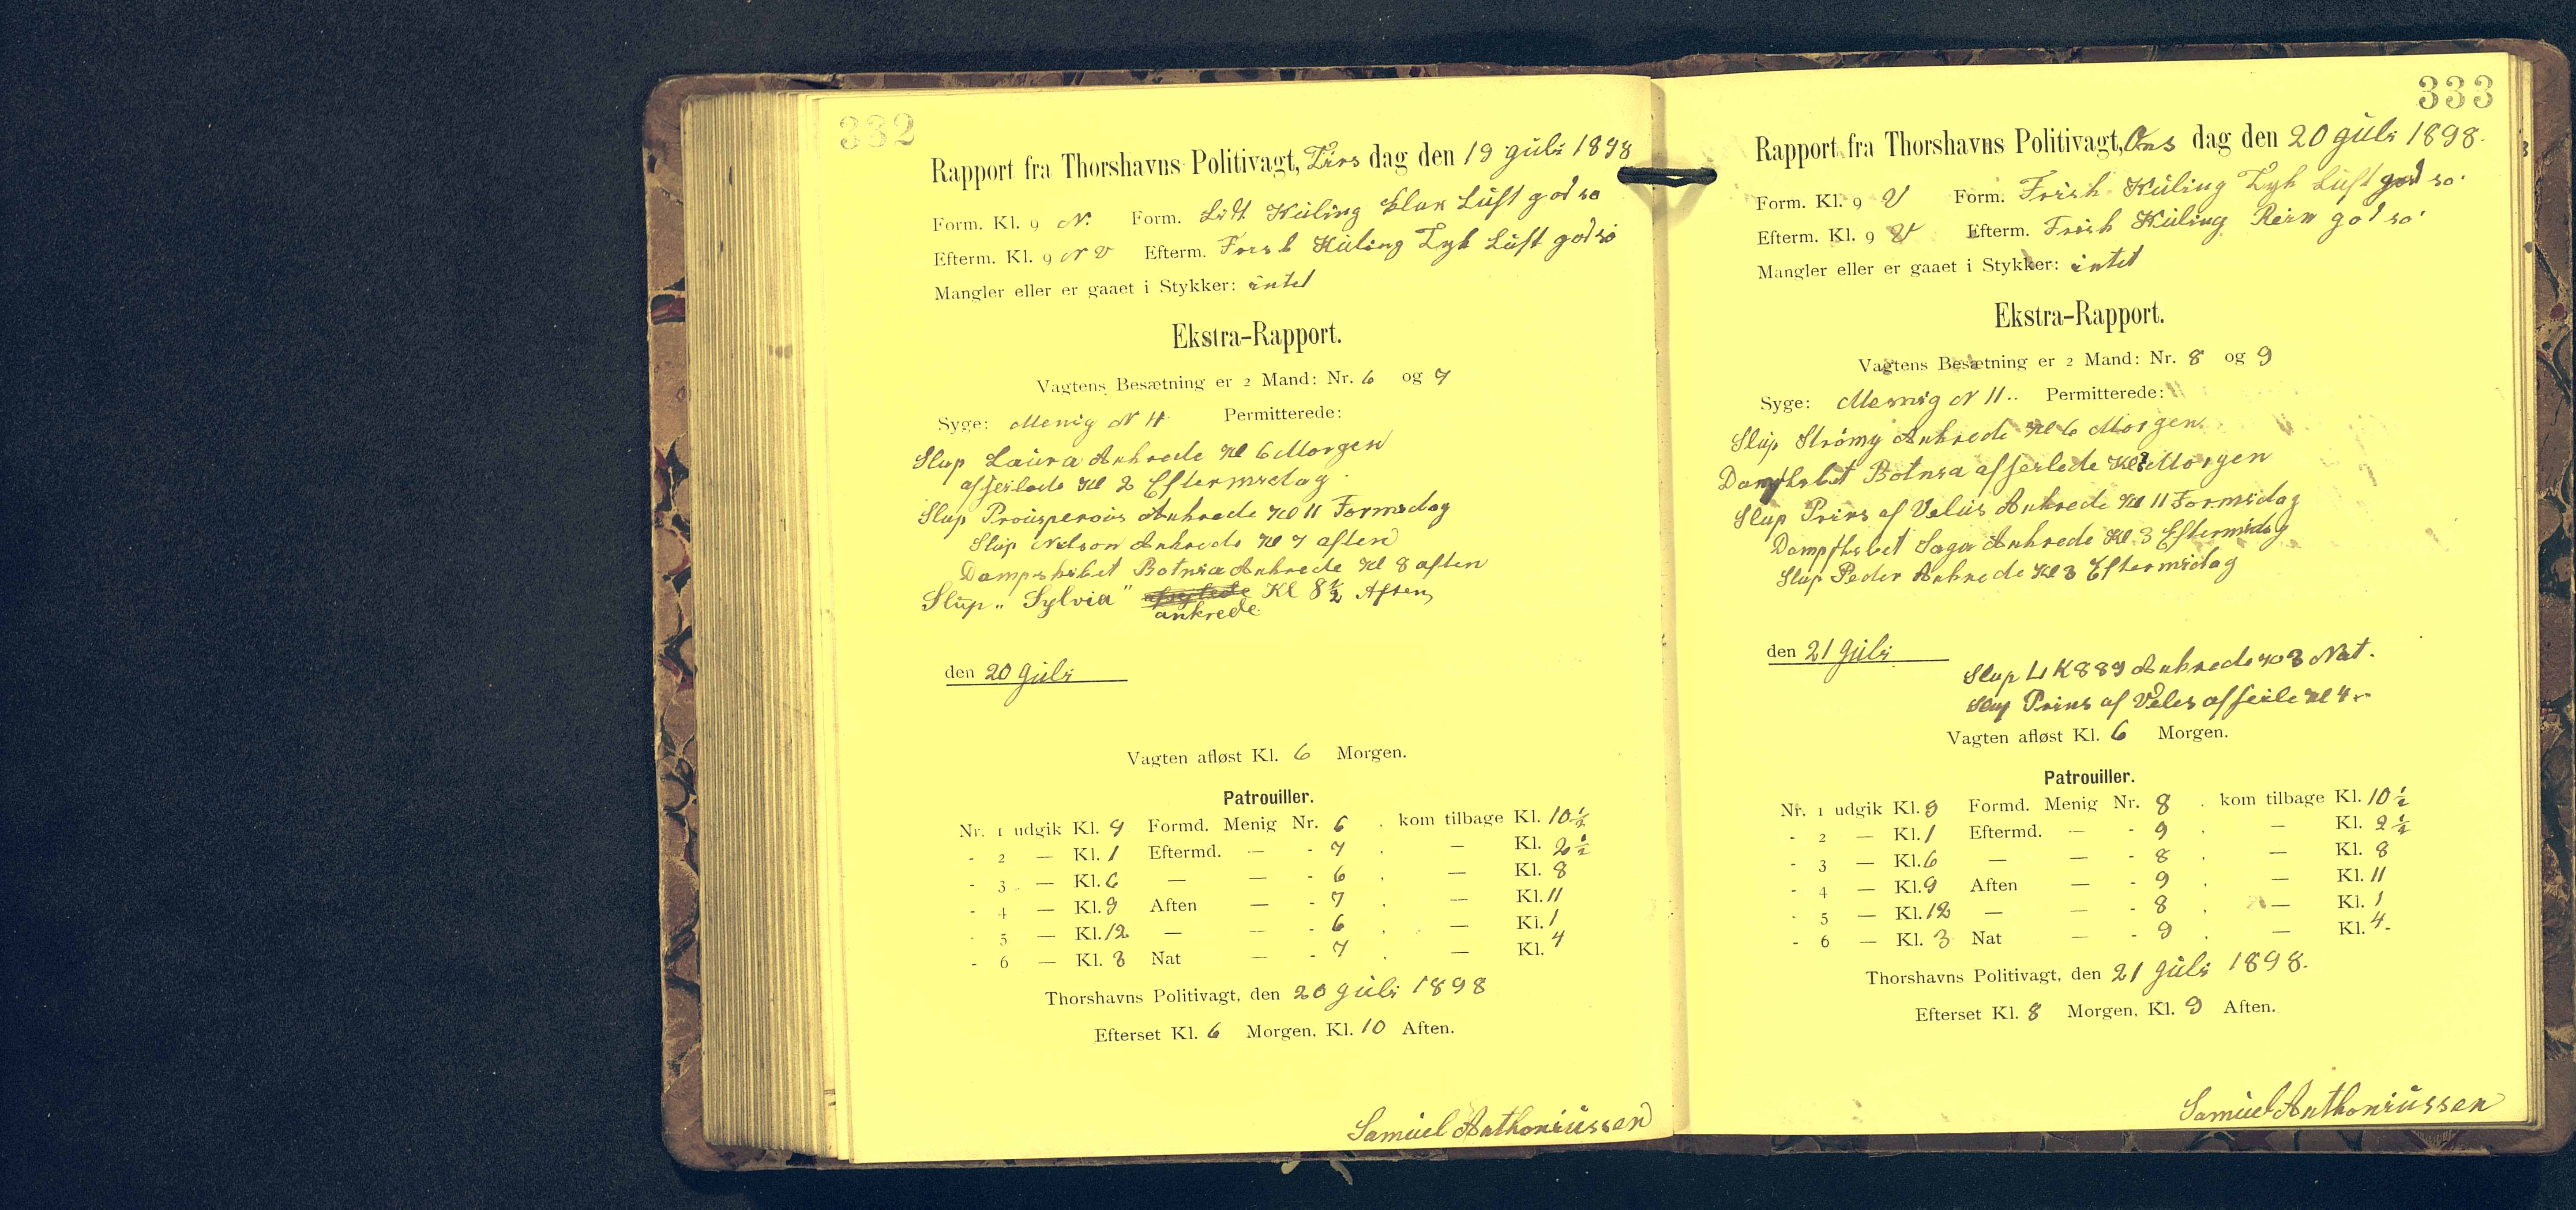 332
Rapport fra Thorshavns Politivagt, Tirs dag den 19 Juli 1898
Form. Kl. 9 N. Form. Lidt Kuling klar Luft god so
Efterm. Kl. 9 N V Efterm. Frisk Kuling Tyk Luft god so
Mangler eller er gaaet i Stykker: intet
Ekstra-Rapport.
Vagtens Besætning er 2 Mand: Nr. 6 og 7
Syge: Menig N 11 Permitterede:
Slup Laura Ankrede Kl 6 Morgen
afseilede Kl 2 Eftermidag
Slup Prousperous Ankrede Kl 11 Formidag
Slup Nelson Ankrede Kl 7 aften
Dampskibet Botnia Ankrede Kl 8 aften
Slup „ Sylvia" afseglede Kl 8½ Aften,
ankrede
den 20 Juli
Vagten afløst Kl. 6 Morgen.
Patrouiller.
Nr. 1 udgik Kl. 9 Formd. Menig Nr. 6 . kom tilbage Kl. 10½
- 2 — Kl. 1 Eftermd. — - 7 . — Kl. 2½
- 3 — Kl. 6 — — - 6 . — Kl. 8
- 4 — Kl. 9 Aften — - 7 . — Kl. 11
- 5 — Kl. 12 — — - 6 . — Kl. 1
- 6 — Kl. 3 Nat — - 7 . — Kl. 4
Thorshavns Politivagt, den 20 Juli 1898
Efterset Kl. 6 Morgen, Kl. 10 Aften.
Samuel Anthoniussen
333
Rapport fra Thorshavns Politivagt, Ons dag den 20 Juli 1898.
Form. Kl. 9 V Form. Frisk Kuling Tyk Luft god so
Efterm. Kl. 9 V Efterm. Frisk Kuling Rein god so
Mangler eller er gaaet i Stykker: intet
Ekstra-Rapport.
Vagtens Besætning er 2 Mand: Nr. 8 og 9
Syge: Menig N 11.. Permitterede:
Slup Strömy Ankrede Kl 6 Morgen
Dampskibet Botnia afseilede Kl Morgen
Slup Prins af Velus Ankrede Kl 11 Formidag
Dampskibet Saga Ankrede Kl 3 Eftermidag
Slup Peder Ankrede Kl 3 Eftermidag
den 21 Juli
Slup LK 889 Ankrede Kl 3 Nat.
Slup Prins af Veles afseile Kl 4 -
Vagten afløst Kl. 6 Morgen.
Patrouiller.
Nr. 1 udgik Kl. 9 Formd. Menig Nr. 8 . kom tilbage Kl. 10½
- 2 — Kl. 1 Eftermd. — - 9 . — Kl. 2½
- 3 — Kl. 6 — — - 8 . — Kl. 8
- 4 — Kl. 9 Aften — - 9 . — Kl. 11
- 5 — Kl. 12 — — - 8 . — Kl. 1
- 6 — Kl. 3 Nat — - 9 . — Kl. 4.
Thorshavns Politivagt, den 21 Juli 1898.
Efterset Kl. 8 Morgen, Kl. 9 Aften.
Samuel Anthoniussen